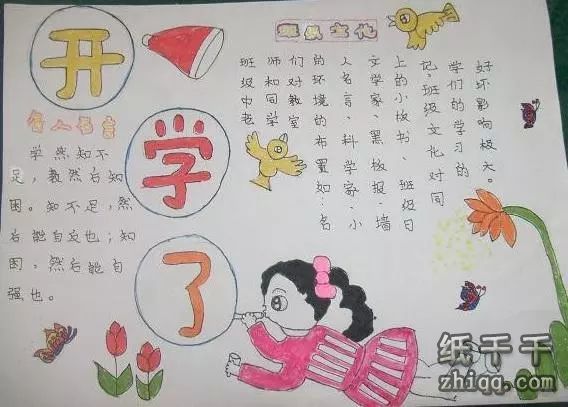 开
学
了
名人名言
学然知不
足,教然后知
困。知不足,然
后能自反也;知
困,然后能自
强也。
班级文化
班级中老
师和同学
们对教室
的环境的布置如:名
人名言、科学家、小
文学家、黑板报、墙
上的小板书、班级日
记,班级文化对同
学们的学习的
好坏影响极大。
纸千千
zhiqq.com